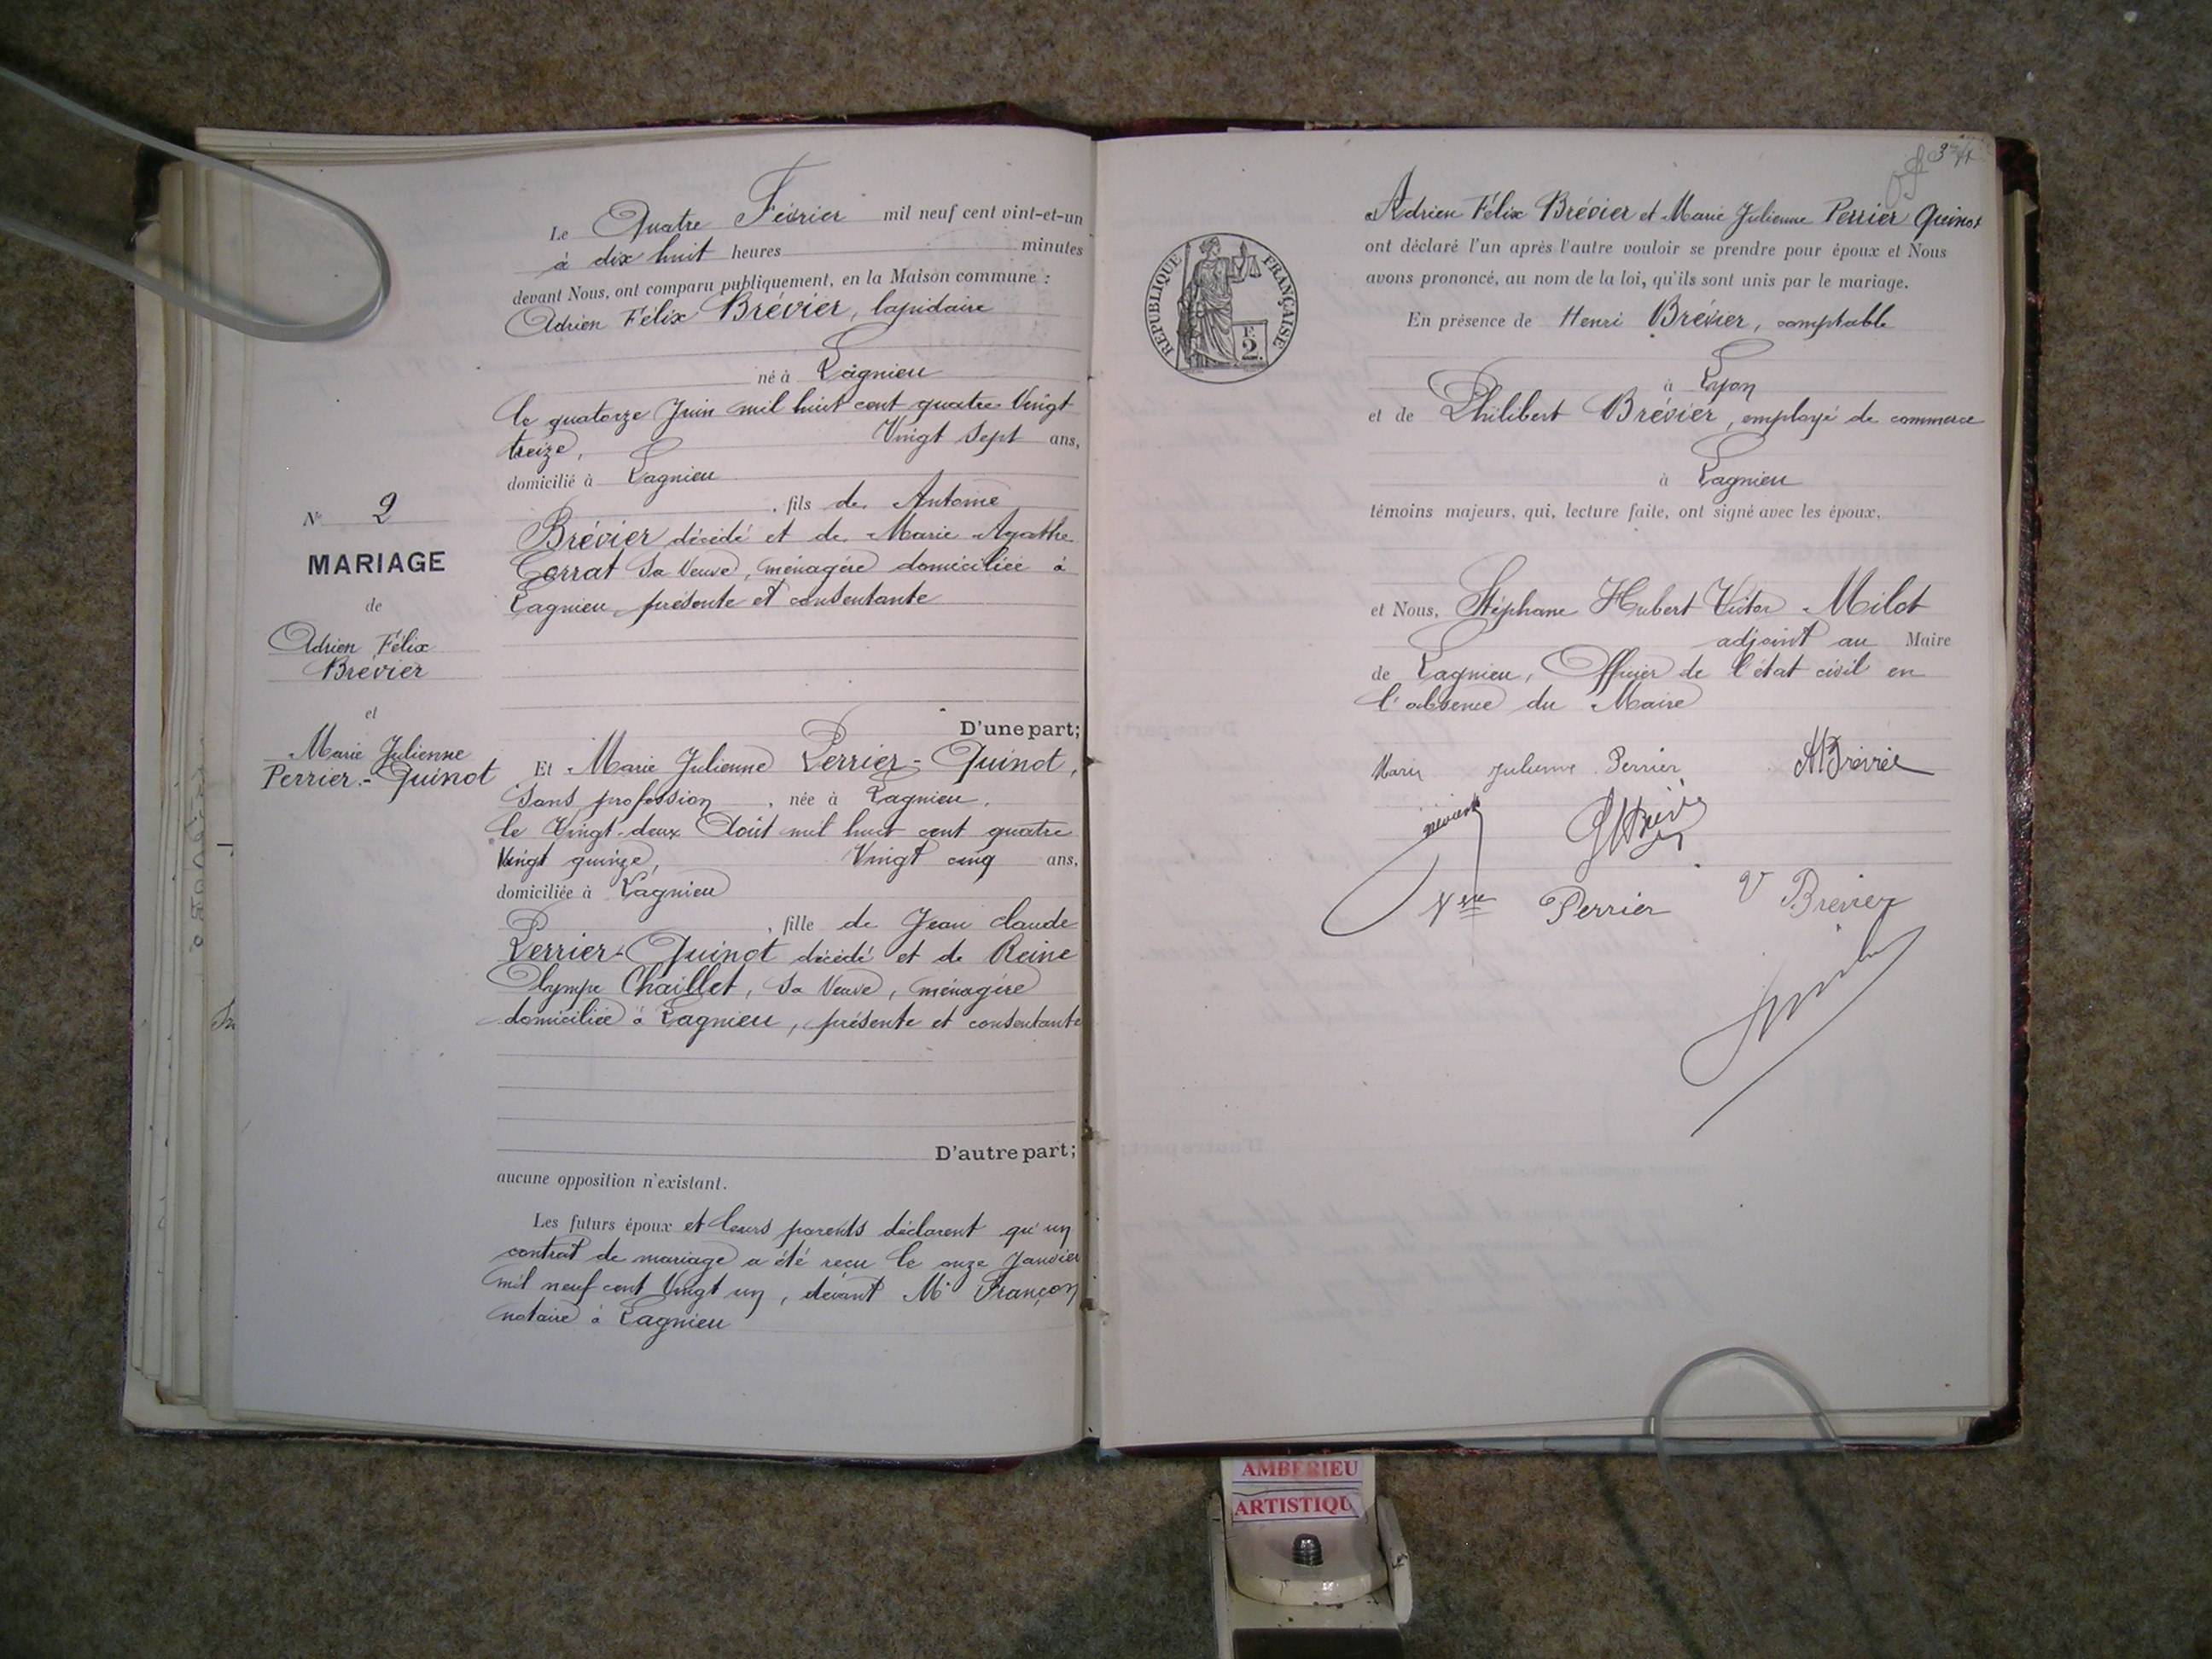 N° 2
MARIAGE
de
Adrien Félix
Brévier
et
Marie Julienne
Perrier-Quinot
Le Quatre Février mil neuf cent vint-et-un
à dix huit heures minutes
devant Nous, ont comparu publiquement, en la Maison commune :
Adrien Félix Brévier, lapidaire
né à Lagnieu
le quatorze Juin mil huit cent quatre Vingt
treize, Vingt Sept ans,
domicilié à Lagnieu
, fils de Antoine
Brévier décédé et de Marie Agathe
Corrat Sa Veuve, ménagère domiciliée à
Lagnieu, présente et consentante
D'une part;
Et Marie Julienne Perrier-Quinot,
Sans profession, née à Lagnieu,
le Vingt-deux Août mil huit cent quatre
Vingt quinze, Vingt cinq ans,
domiciliée à Lagnieu
, fille de Jean Claude
Perrier-Quinot décédé et de Reine
Olympe Chaillet, Sa Veuve, ménagère
domiciliée à Lagnieu, présente et consentante
D'autre part;
aucune opposition n'existant.
Les futurs époux et leurs parents déclarent qu'un
contrat de mariage a été reçu le onze Janvier
mil neuf cent Vingt un, devant Me Françon
notaire à Lagnieu
RÉPUBLIQUE FRANÇAISE
2
F.
Adrien Félix Brévier et Marie Julienne Perrier Quinot
ont déclaré l'un après l'autre vouloir se prendre pour époux et Nous
avons prononcé, au nom de la loi, qu'ils sont unis par le mariage.
En présence de Henri Brévier, comptable
à Lyon
et de Philibert Brévier, employé de commerce
à Lagnieu
témoins majeurs, qui, lecture faite, ont signé avec les époux,
et Nous, Stéphane Hubert Victor Milot
adjoint au Maire
de Lagnieu, Officier de l'état civil en
l'absence du Maire
Marie Julienne Perrier ABrévier
Vve Perrier V Brevier
AMBERIEU
ARTISTIQU